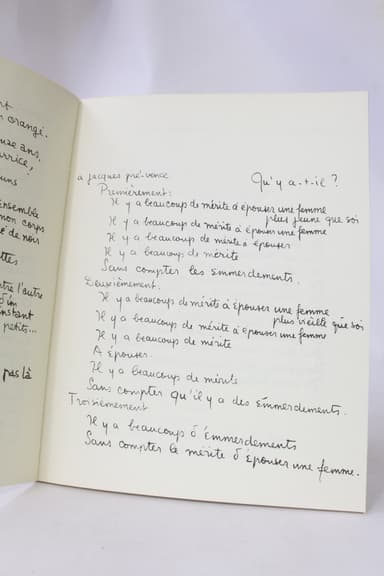 orangé.
ans.
mon corps
l'autre
petits...
pas là
Qu'y a-t-il ?
à Jacques pré-vence
Premièrement:
Il y a beaucoup de mérite à épouser une femme
plus jeune que soi
Il y a beaucoup de mérite à épouser une femme
Il y a beaucoup de mérite à épouser
Il y a beaucoup de mérite
Sans compter les Emmerdements.
Deuxièmement:
Il y a beaucoup de mérite à épouser une femme
plus vieille que soi
Il y a beaucoup de mérite à épouser une femme
Il y a beaucoup de mérite
A Épouser.
Il y a beaucoup de mérite
Sans compter qu'il y a des Emmerdements.
Troisièmement
Il y a beaucoup d'Emmerdements
Sans compter le mérite d'Épouser une femme.